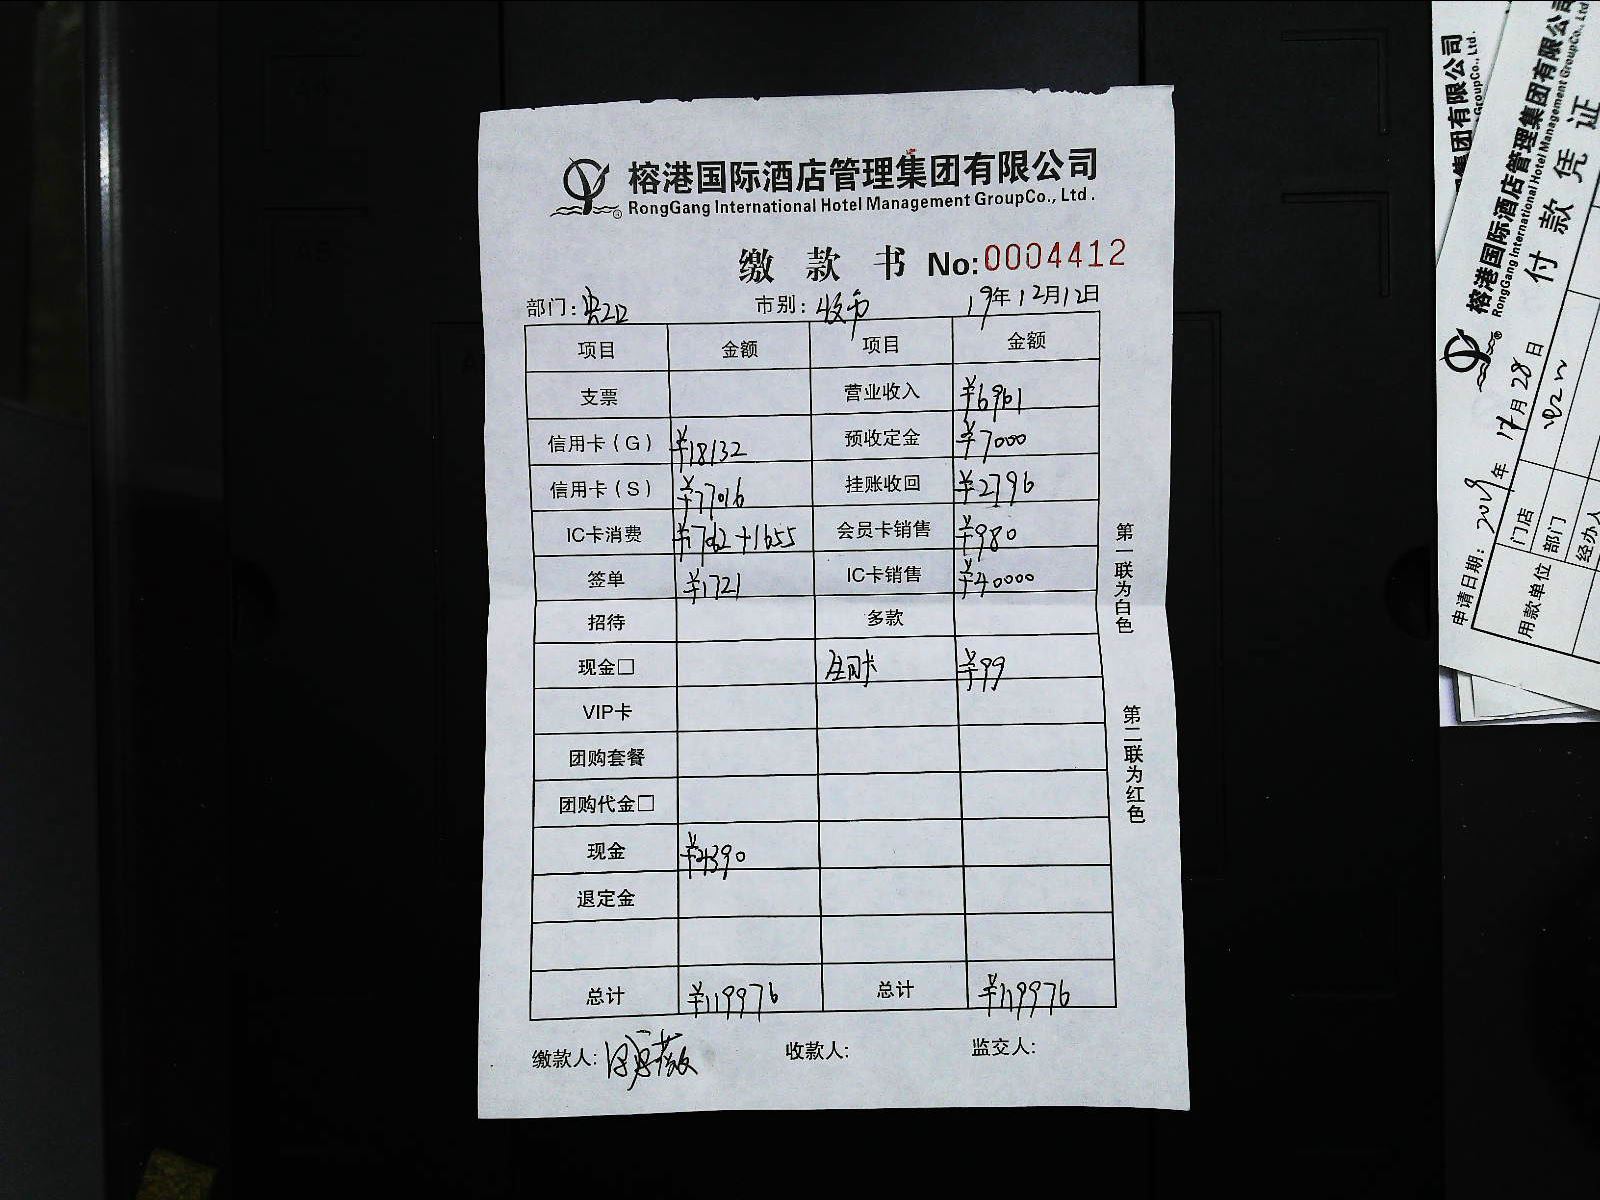 榕港国际酒店管理集团有限公司
RongGang International Hotel Management GroupCo., Ltd.
缴款书 No:0004412
部门: 市别: 19年12月12日
项目 金额 项目 金额
支票 营业收入 ¥69101
信用卡(G) ¥18132 预收定金 ¥7000
信用卡(S) ¥77016 挂账收回 ¥2796
IC卡消费 ¥17062+1655 会员卡销售 ¥980
签单 ¥1721 IC卡销售 ¥40000
招待 多款
现金□ ¥99
VIP卡
团购套餐
团购代金□
现金 ¥4390
退定金
总计 ¥119976 总计 ¥119976
缴款人: 收款人: 监交人:
第一联为白色
第二联为红色
集团有限公司
GroupCo., Ltd.
榕港国际酒店管理集团有限公司
RongGang International Hotel Management GroupCo., Ltd
付款凭证
申请日期: 2019年12月28日
门店
部门
经办人
用款单位